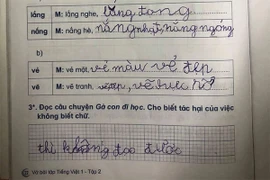 lắng M: lắng nghe, lắng đọng
nắng M: nắng hè, nắng nhạt, nắng nóng
b)
vẻ M: vẻ mặt, vẻ màu vẻ đẹp
vẽ M: vẽ tranh, vẽ
3*. Đọc câu chuyện Gà con đi học. Cho biết tác hại của việc
không biết chữ.
thì không đọc được
Vở bài tập Tiếng Việt 1 - Tập 2